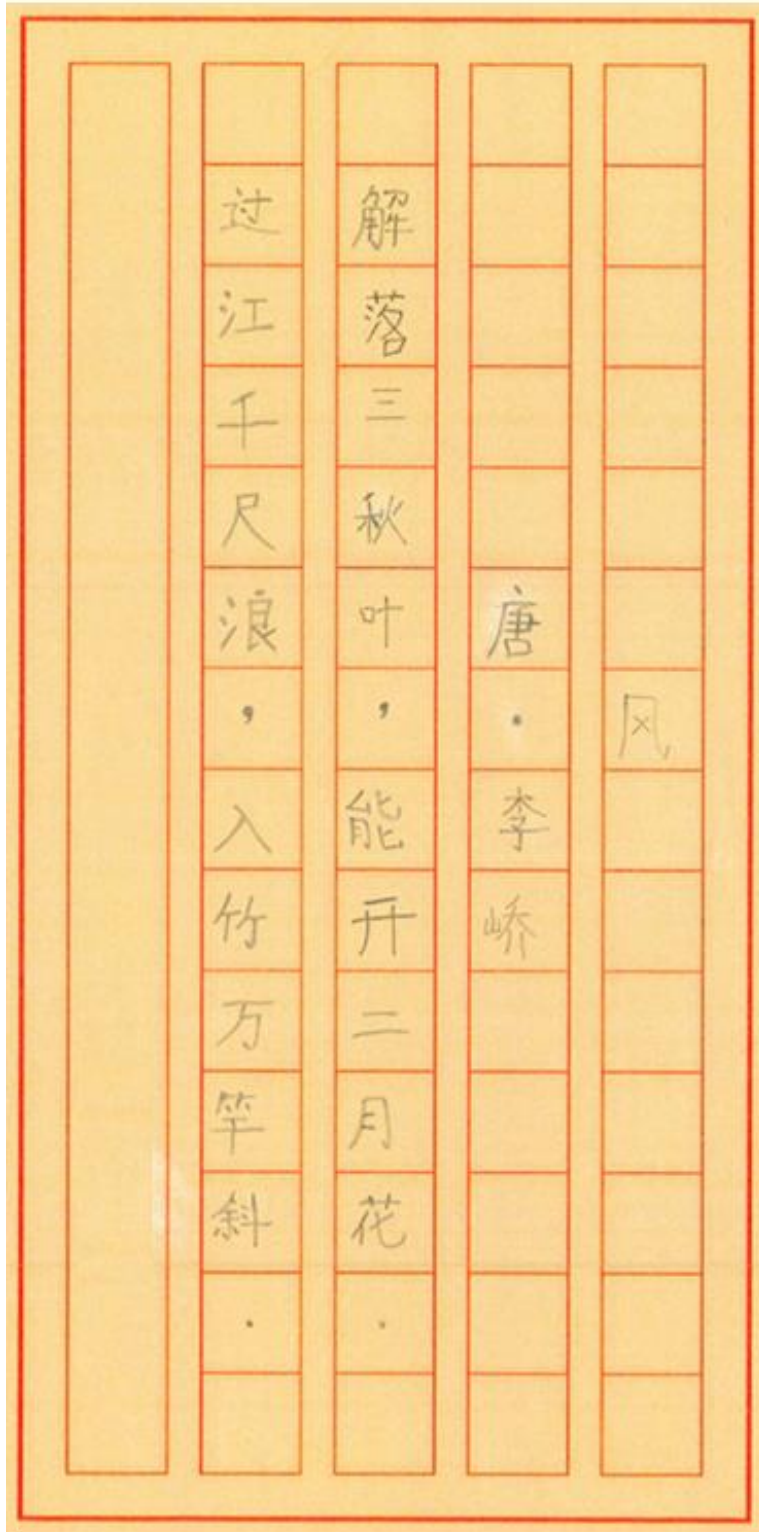 风
唐·李峤
解落三秋叶，能开二月花.
过江千尺浪，入竹万竿斜.